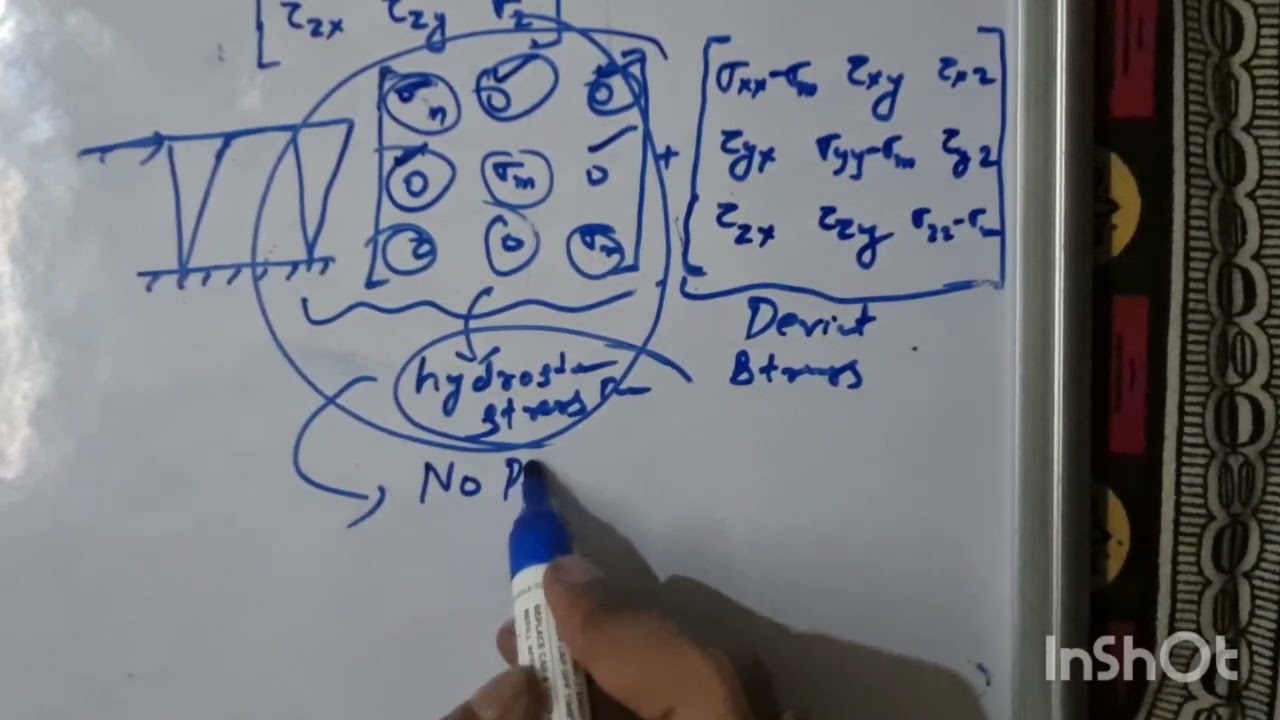 τzx τzy σz
σm 0 0
0 σm 0
0 0 σm
+
σxx-σm τxy τxz
τyx σyy-σm τyz
τzx τzy σzz-σm
hydros
stress
Deviat
Stress
No P
REPLACE CAP
InShOt